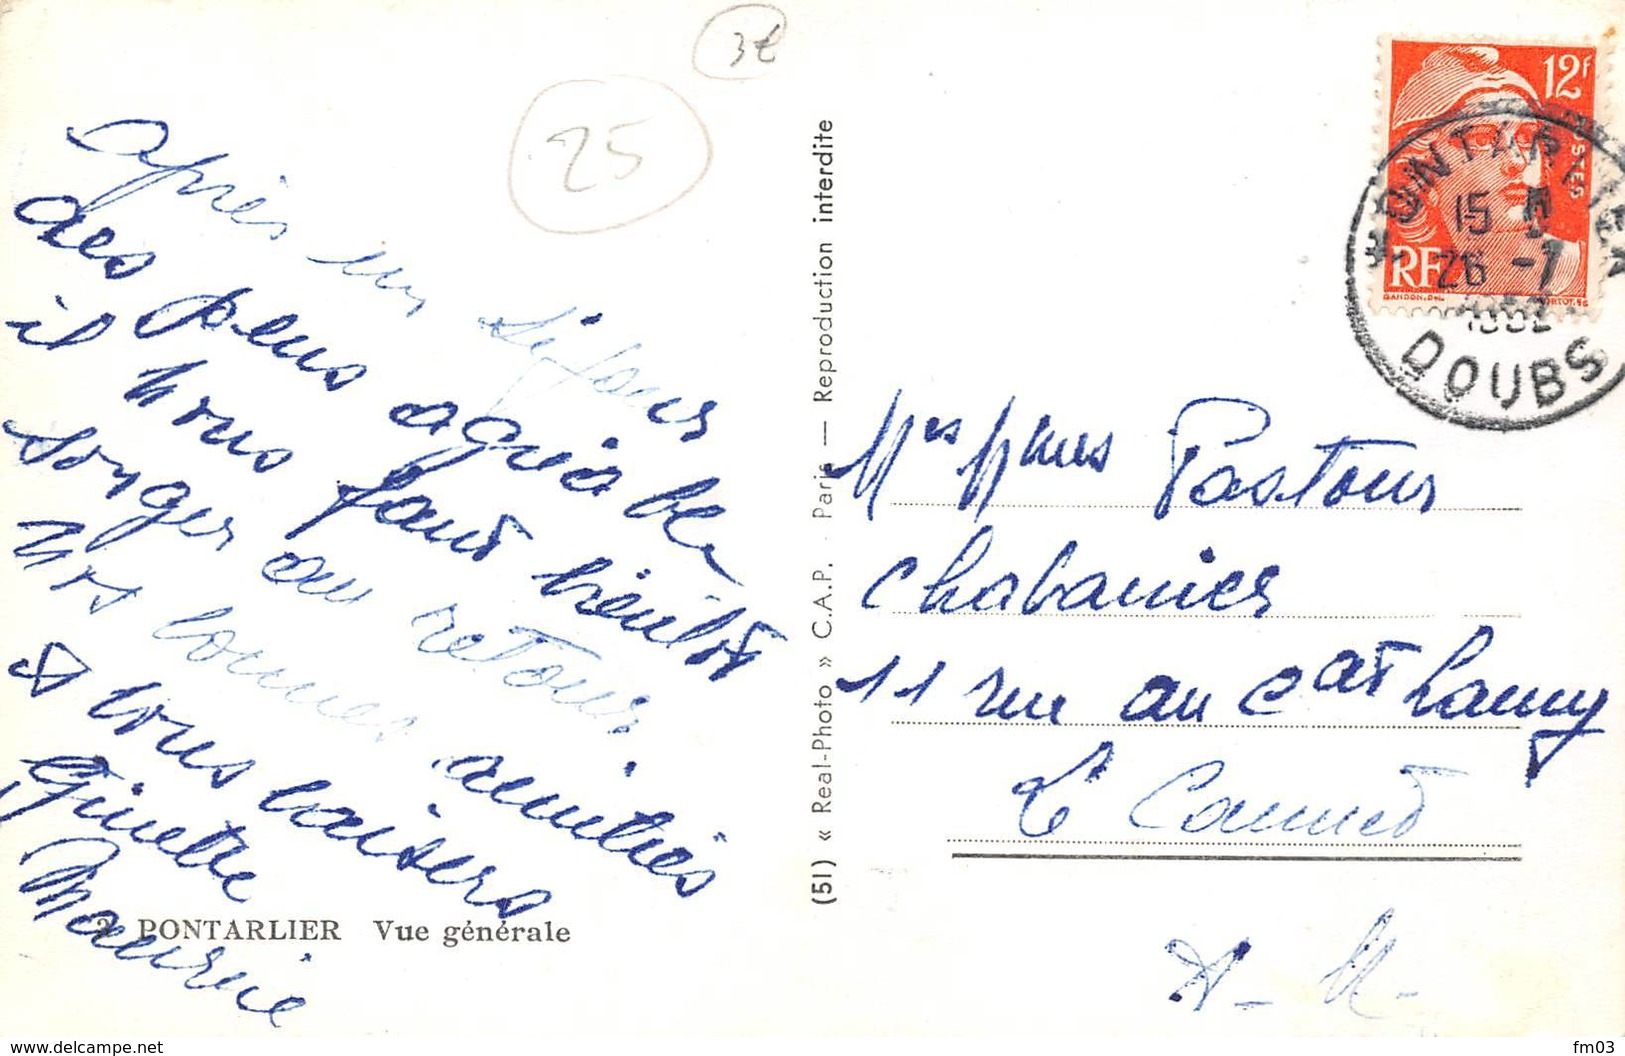 3€
25
Après un séjour
des plus agréable
il nous faut bientôt
songer au retour.
Nos bonnes amitiés
& bons baisers
Ginette
Maurice
2 PONTARLIER Vue générale
(51) « Real-Photo » C.A.P. Paris — Reproduction interdite
12F
POSTES
RF
GANDON.DEL
CORTOT.SC
PONTARLIER
15 H
26 -7
1952
DOUBS
Mrs Mmes Pastour
Chabanier
11 rue au Cat Lanny
Le Cannet
A. M.
www.delcampe.net
fm03